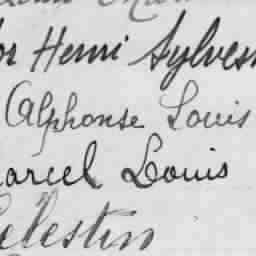 or Henri Sylves
Alphonse Louis
arcel Louis
Célestin